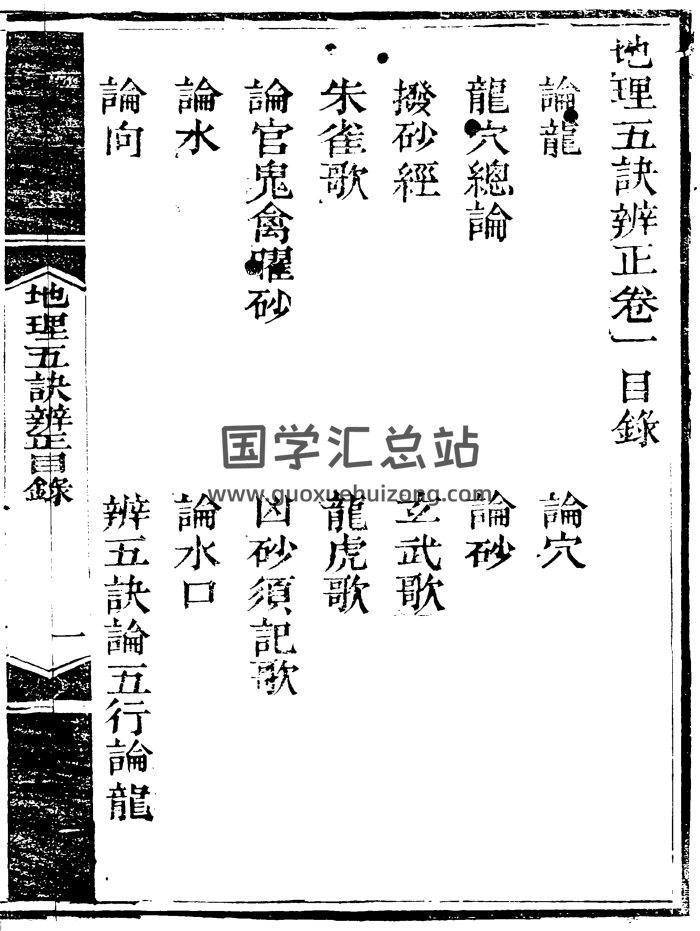 地理五訣辨正卷一目錄
論龍
論穴
龍穴總論
論砂
撥砂經
玄武歌
朱雀歌
龍虎歌
論官鬼禽曜砂
凶砂須記歌
論水
論水口
論向
辨五訣論五行論龍
地理五訣辨正目錄
一
国学汇总站
www.guoxuehuizong.com